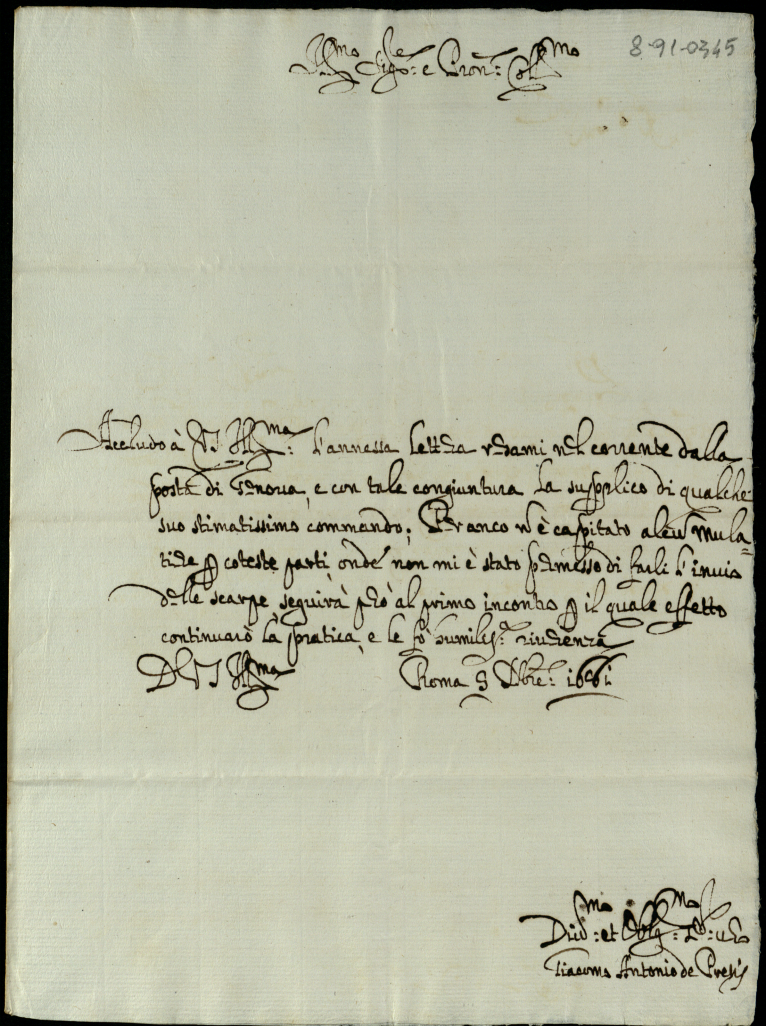 8-91-0345
Ill.mo Sig.re e Pron: Col.mo
Accludo à V.S. Ill.ma: l'annessa lettera resami nel corrente dalla
posta di Genova, e con tale congiuntura la supplico di qualche
suo stimatissimo commando; Branco n è capitato alcun mula=
tiere p coteste parti onde non mi è stato permesso di farli l'invio
delle scarpe seguirà però al primo incontro p il quale effetto
continuarò la pratica, e le fò humiliss.a riverenza
D V.S. Ill.ma Roma 9 Xbre: 1661:
Div.mo: et Oblig.mo: S.re: vero
Giacomo Antonio de